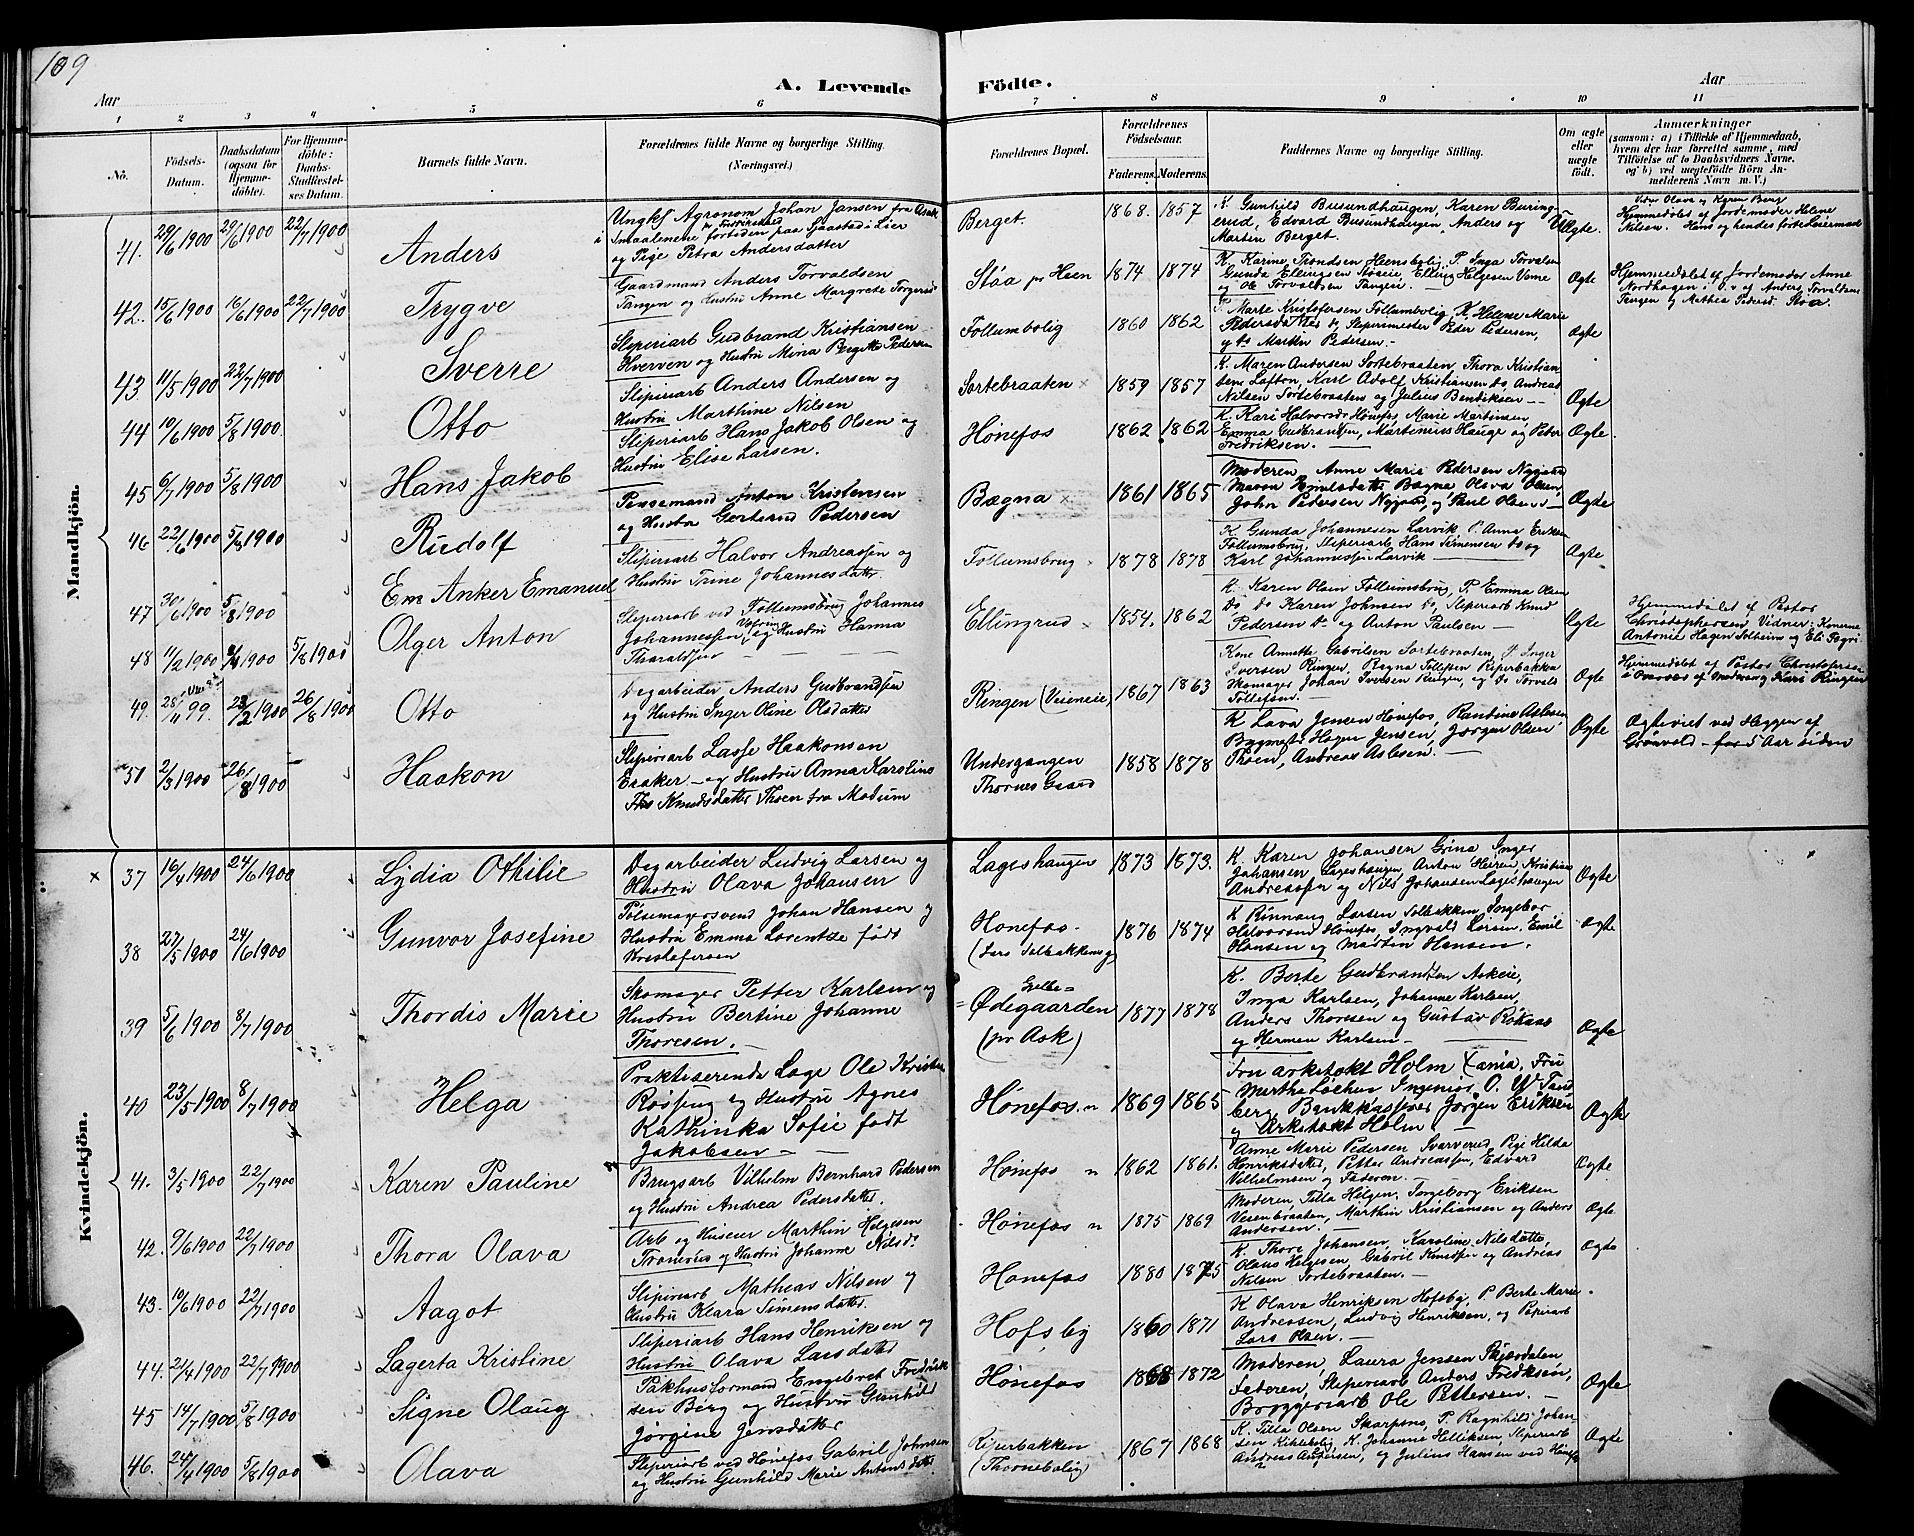 109
A. Levende Födte.
Aar
Aar
1 2 3 4 5 6 7 8 9 10 11
No.
Födsels-Datum.
Daabsdatum (ogsaa for Hjemmedöbte).
For Hjemmedöbte: Daabs-Stadfæstelses Datum.
Barnets fulde Navn.
Forældrenes fulde Navne og borgerlige Stilling. (Næringsvei.)
Forældrenes Bopæl.
Forældrenes Födselsaar.
Faderens. Moderens.
Faddernes Navne og borgerlige Stilling.
Om ægte eller uægte födt.
Anmærkninger
(saasom: a) i Tilfælde af Hjemmedaab, hvem der har forrettet samme, med Tilföielse af to Daabsvidners Navne. og b) ved uægtefödte Börn Anmelderens Navn m. V.)
Mandkjön.
41. 29/6 1900 29/6 1900 22/7 1900 Anders
Ungkf Agronom Johan Jansen fra Ask
i Smaalenene fortiden paa Gaastad i Lier
og Pige Petra Andersdatter
Berget. 1868. 1857
K. Gunhild Busundhaugen, Karen Buringerud, Edvard Busundhaugen, Anders og
Martin Berget.
Uægte.
Hjemmedøbt af Jordemoder Helene
Nilsen. Hans og hendes første Leiermaal
42. 15/6 1900 16/6 1900 22/7 1900 Trygve
Gaardmand Anders Torvaldsen
Tangen og Hustru Anne Margrete Torgersd
Støa pr Heen 1874 1874
K. Karine Trondsen Heensbolig, P. Inga Torvalsen
Gunda Ellingsen Støaeie, Elling Helgesen Veme
og Ole Torvaldsen Tangen.
Ægte
Hjemmedøbt af Jordemoder Anne
Nordhagen i O. v af Anders Torvaldsen
Tangen og Mathea Pedersd. Støa.
43 11/5 1900 22/7 1900 Sverre
Sliperiarb Gudbrand Kristiansen
Hverven og Hustru Mina Bergitte Pedersen
Follumbolig 1860 1862
P. Marte Kristofersen Follumbolig, K. Helene Marie
Pedersdatter do, Slipermester Peder Pedersen,
og do Martin Pedersen.
Ægte
44 10/6 1900 5/8 1900. Otto
Sliperiarb Anders Andersen og
Hustru Marthine Nilsen
Sortebraaten 1859 1857
K. Maren Andersen Sortebraaten, Thora Kristiansen Lofton, Karl Adolf Kristiansen do, Andreas
Nilsen Sortebraaten og Julius Bendiksen
Ægte
45 6/7 1900 5/8 1900 Hans Jakob
Sliperiarb Hans Jakob Olsen og
Hustru Elise Larsen.
Hønefos 1862 1862
K. Kari Halvorsdr Hønefos, Marie Martinsen
Emma Gudbransen, Martinius Hauge og Peter
Fredriksen.
Ægte
46 22/6 1900 5/8 1900 Rudolf
Pensemand Anton Kristensen
og Hustru Gertrud Pedersen
Bægna 1861 1865
Moderen, Anne Marie Pedersen Nygaard
Maria Emilsdatter Bægna Olava Olsen,
John Pedersen Nygaard, og Paul Olsen
Ægte
47 30/6 1900 5/8 1900 Em Anker Emanuel
Sliperiarb Halvor Andreassen og
Hustru Trine Johannesdatter
Follumsbrug 1878 1878
K Gunda Johannesen Larvik, P. Anna Eriksen
Follumsbrug, Sliperiarb Hans Simensen do og
Karl Johannessen Larvik
Ægte
48 11/2 1900 1900 5/8 1900 Olger Anton
Sliperiarb ved Follumsbrug Johannes
Johannessen og Hustru Hanna
Tharaldsen
Ellingrud 1854. 1862
K. Karen Olsen Follumsbrug, P. Emma Olsen
do, do Karen Johnsen do, Sliperiarb Knud
Pedersen do og Anton Paulsen
Ægte
Hjemmedøbt af Pastor
Christophersen Vidner: Konerne
Antonie Hagen Solheim og Eli
49. 28/11 99. 23/2 1900 26/8 1900 Otto
Dagarbeider Anders Gudbrandsen
og Hustru Inger Oline Olsdatter
Ringen (Veieneie) 1867 1863
Kone Annette Gabrilsen Sortebraaten, P Inger
Iversen Ringen, Ragna Tollefsen Riperbakken
Skomager Johan Iversen Ringen, og do Torvald
Tollefsen.
Ægte
Hjemmedøbt af Pastor Christofersen
i Overvær af Moderen og Kari Ringen
51 2/3 1900 26/8 1900 Haakon
Sliperiarb Lasse Haakonsen
Esaker og Hustru Anna Karoline
Knudsdatter Thoen fra Modum
Undergangen
Thornes Gaard 1858 1878
K Lava Jensen Hønefos, Rantine Aslesen
Bygmester Hagen Jensen, Jørgen Olsen
Thoen, Andreas Aslesen.
Ægte
Ægteviet ved Heggen af
Grønvold for 5 Aar siden
Kvindekjön.
37 16/4 1900 24/6 1900 Lydia Othilie
Dagarbeider Ludvig Larsen og
Hustru Olava Johansen
Lageshaugen 1873 1873.
K. Karen Johansen Grina Inger
Johansen Lageshaugen, Anton Heiren, Kristian
Andreassen og Nils Johansen Lageshaugen
Ægte
38 27/5 1900 24/6 1900 Gunvor Josefine
Pølsemagersvend Johan Hansen og
Hustru Emma Lorentze født
Kristofersen
Hønefos.
(Lars Solbakkens g) 1876 1874
K Rønnaug Larsen Solbakken, Ingebor
Halvorsrud Hønefos, Ingvald Larsen, Emil
Hansen og Martin Hansen.
Ægte
39 5/6 1900 8/7 1900 Thordis Marie
Skomager Petter Karlsen og
Hustru Bertine Johanne
Thoresen.
Ødegaarden
(pr Ask) 1877 1878
K. Berte Gudbrandsen Askeie,
Inga Karlsen, Johanne Karlsen,
Anders Thoresen og Gustav Risaas
og Herman Karlsen
Ægte
40 23/5 1900 8/7 1900 Helga
Praktiserende Læge Ole Kristian
Rossing og Hustru Agnes
Kathinka Sofie født
Jakobsen
Hønefos. 1869 1865
Fru arkitekt Holm Xania, Fru
Mertha Løchen, Ingeniør O. W Tandberg, Bankkasserer Jørgen Eriksen
og Arkitekt Holm.
Ægte
41. 3/5 1900 22/7 1900 Karen Pauline
Brugsarb Vilhelm Bernhard Pedersen
og Hustru Andrea Pedersdatter.
Hønefos 1862 1861.
Anne Marie Pedersen Svarverud, Pige Hilda
Henriksdatter, Petter Andreassen, Edvard
Vilhelmsen og Faderen.
Ægte
42. 9/6 1900 22/7 1900 Thora Olava
Arb og Huseier Marthin Helgesen
Tranerus og Hustru Johanne Nilsdr
Hønefos 1875 1869
Moderen, Tilla Helgen, Ingeborg Eriksen
Vesenbraaten, Marthin Kristiansen og Anders
Andersen.
Ægte
43. 10/6 1900 22/7 1900 Aagot
Sliperiarb Mathias Nilsen og
Hustru Klara Simensdatter.
Hønefos 1880 1875
K. Thora Johansen, Karoline Nilsdatter,
Olaus Helgesen, Gabril Knudsen og Andreas
Nilsen Sortebraaten.
Ægte
44. 21/4 1900 22/7 1900 Lagerta Kristine
Sliperiarb Hans Henriksen og
Hustru Olava Larsdatter
Hofsby 1860 1871
K Olava Henriksen Hofsby, P Berte Marie
Andreasen, Ludvig Henriksen, og Papirarb
Lars Olsen.
45 14/7 1900 5/8 1900 Signe Olaug
Pakhusformand Engebret Fredriksen Berg og Hustru Gunhild
Jørgine Jensdatter
Hønefos 1868 1872
Moderen, Laura Jensen Skjærdalen
Faderen, Sliperiarb Anders Fredksen,
Bryggeriarb Ole Pettersen.
Ægte
46. 24/4 1900 5/8 1900 Olava
Sliperiarb ved Hønefos Gabril Johnsen
og Hustru Gunhild Marie Antonsdatter
Riperbakken
(Thornebolig) 1867 1868
K. Tilla Olsen Skarpsno, P. Ragnhild Johansen Kihlebolig, K. Johanne Helliksen, Sliperiarb
Andreas Andersen, og Julius Hansen ved Hønefos
Ægte